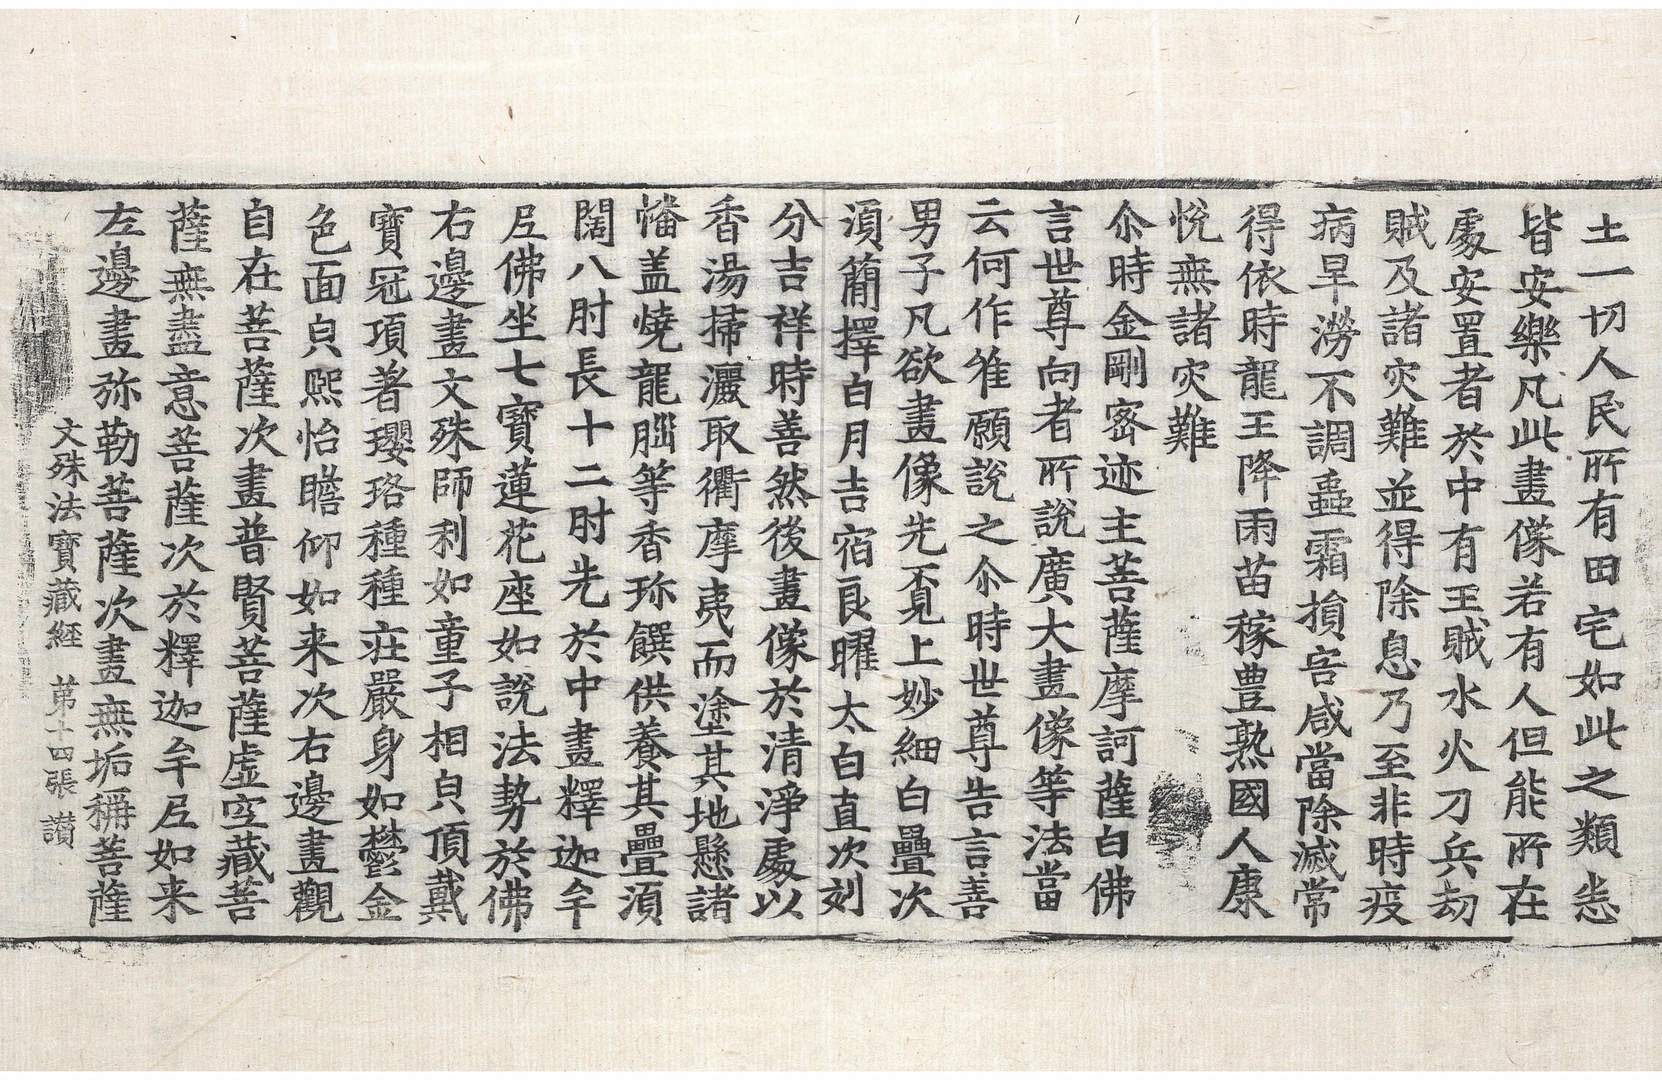 土一切人民所有田宅如此之類悉
皆安樂凡此畫像若有人但能所在
處安置者於中有王賊水火刀兵劫
賊及諸灾難並得除息乃至非時疫
病旱澇不調蟲霜損害咸當除滅常
得依時龍王降雨苗稼豊熟國人康
悅無諸灾難
尒時金剛密迹主菩薩摩訶薩白佛
言世尊向者所說廣大畫像等法當
云何作唯願說之尒時世尊告言善
男子凡欲畫像先覔上妙細白疊次
須簡擇白月吉宿良曜太白直次刻
分吉祥時善然後畫像於清淨處以
香湯掃灑取衢摩夷而塗其地懸諸
幡盖燒龍腦等香珎饌供養其疊須
闊八肘長十二肘先於中畫釋迦牟
尼佛坐七寶蓮花座如說法勢於佛
右邊畫文殊師利如童子相皃頂戴
寶冠項著瓔珞種種莊嚴身如鬱金
色面皃熈怡瞻仰如来次右邊畫觀
自在菩薩次畫普賢菩薩虛空藏菩
薩無盡意菩薩次於釋迦牟尼如来
左邊畫弥勒菩薩次畫無垢稱菩薩
文殊法寶藏經 苐十四張 讃